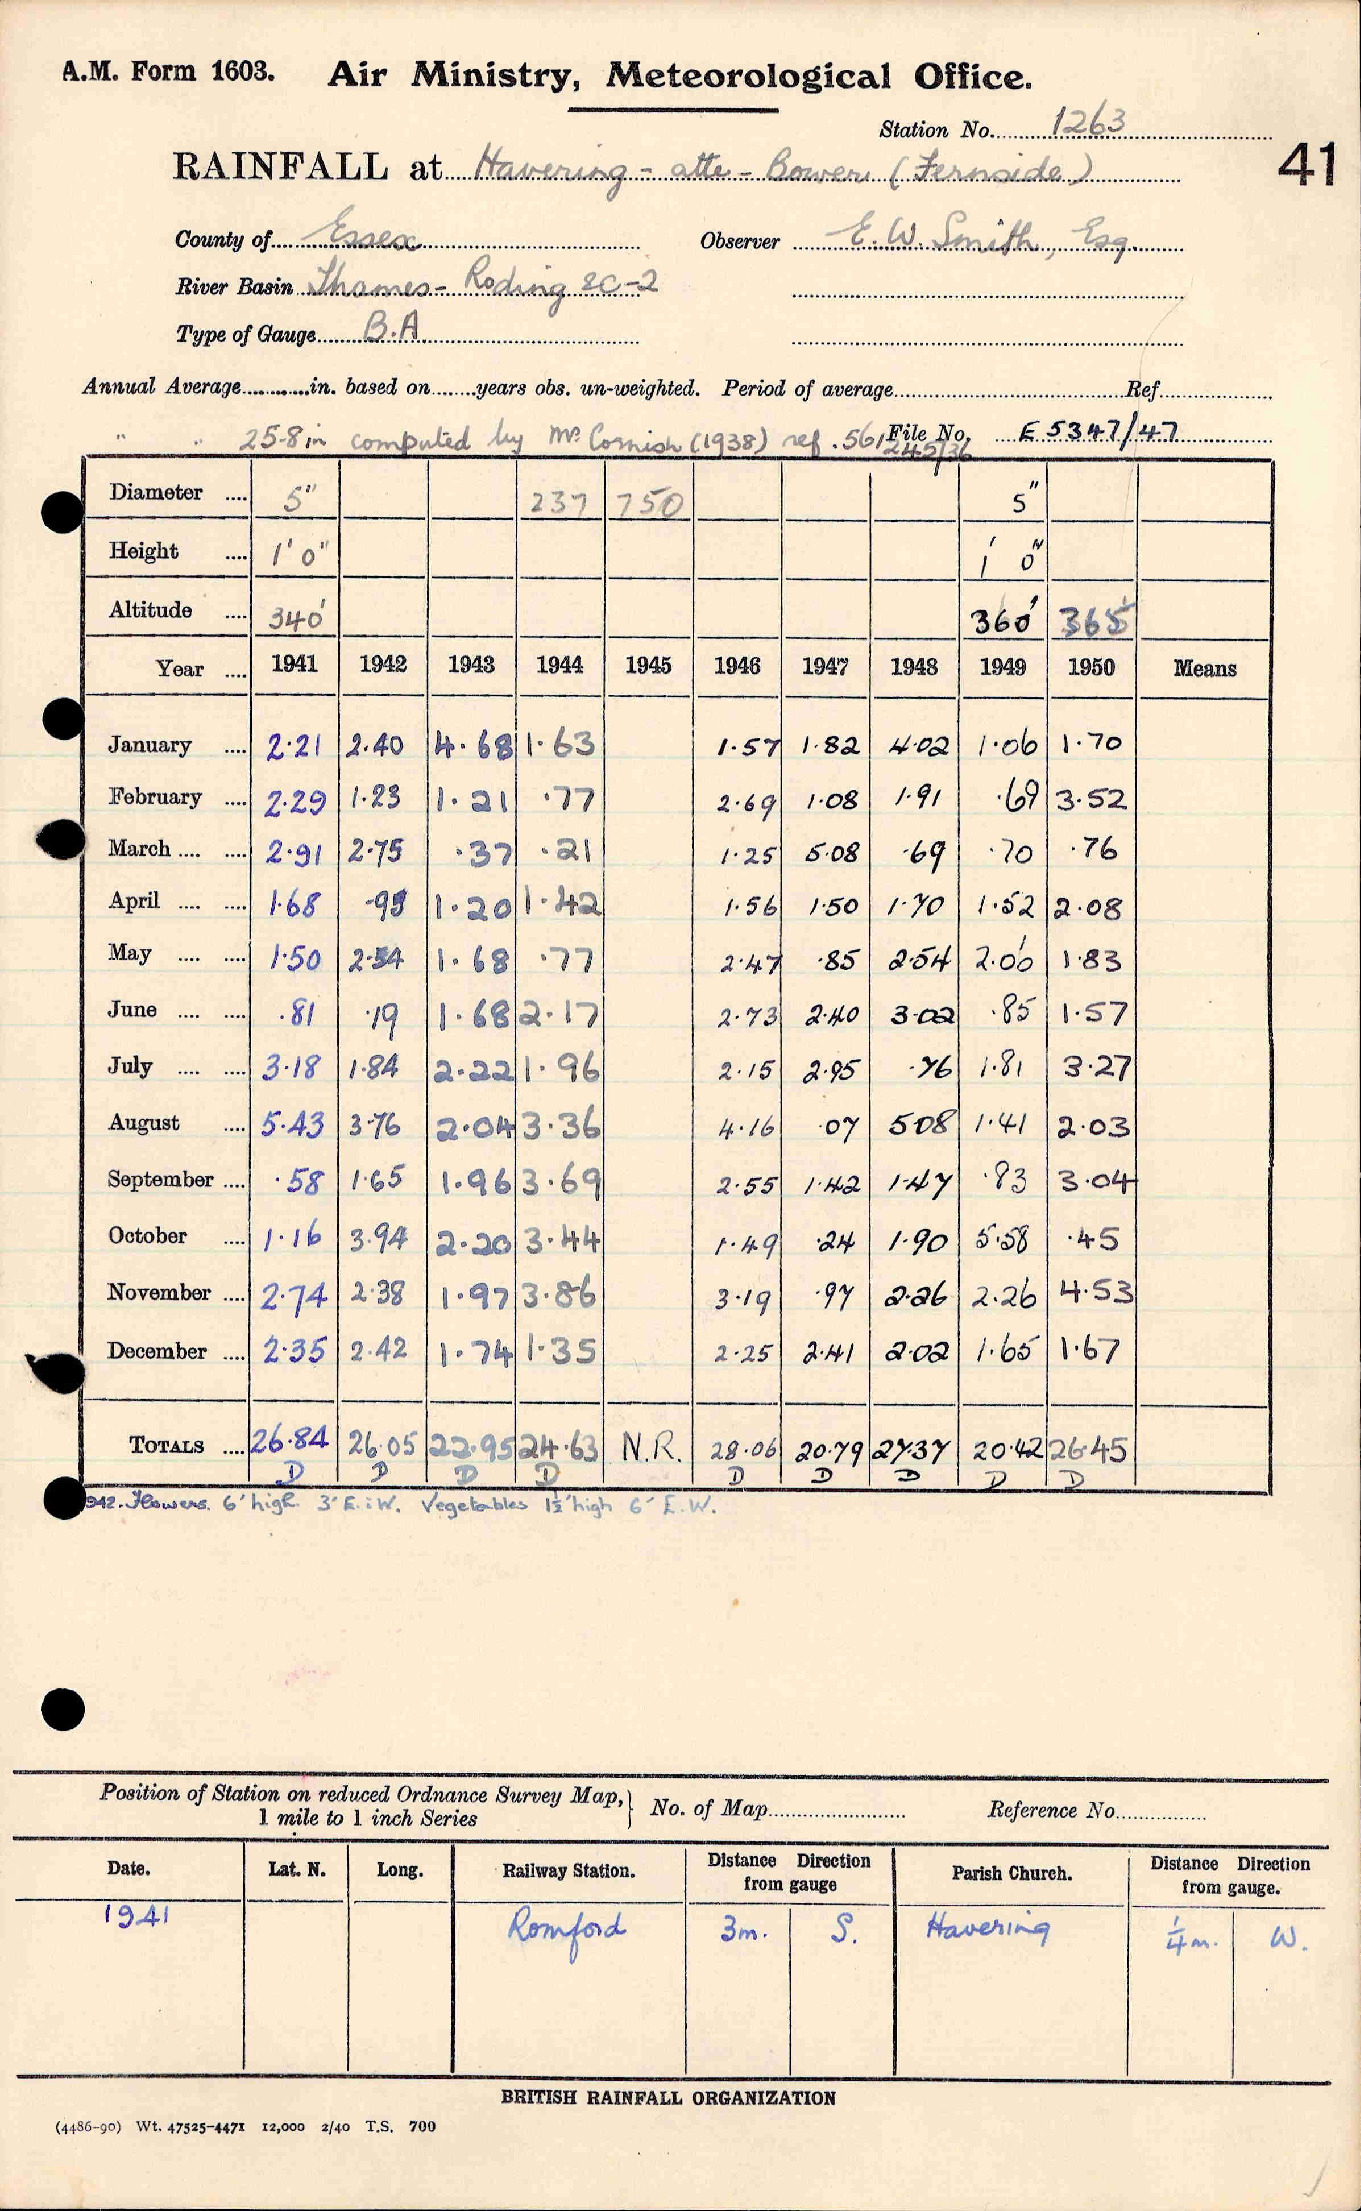 A.M. Form 1603. Air Ministry, Meteorological Office.
Station No. 1263
41
RAINFALL at Havering-atte-Bower (Fernside)
County of Essex Observer E. W. Smith, Esq.
River Basin Thames - Roding 2C-2
Type of Gauge B.A
Annual Average in. based on years obs. un-weighted. Period of average Ref
" " 25.8 in computed by Mr Cornish (1938) ref. 561245/36 File No. E 5347/47
Diameter .... 5" 237 750 5"
Height .... 1' 0" 1' 0"
Altitude .... 340' 360' 365'
Year .... 1941 1942 1943 1944 1945 1946 1947 1948 1949 1950 Means
January .... 2.21 2.40 4.68 1.63 1.57 1.82 4.02 1.06 1.70
February .... 2.29 1.23 1.21 .77 2.69 1.08 1.91 .69 3.52
March .... .... 2.91 2.75 .37 .21 1.25 5.08 .69 .70 .76
April .... .... 1.68 .95 1.20 1.42 1.56 1.50 1.70 1.52 2.08
May .... .... 1.50 2.54 1.68 .77 2.47 .85 2.54 2.06 1.83
June .... .... .81 .19 1.68 2.17 2.73 2.40 3.02 .85 1.57
July .... .... 3.18 1.84 2.22 1.96 2.15 2.95 .76 1.81 3.27
August .... 5.43 3.76 2.04 3.36 4.16 .07 5.08 1.41 2.03
September .... .58 1.65 1.96 3.69 2.55 1.42 1.47 .83 3.04
October .... 1.16 3.94 2.20 3.44 1.49 .24 1.90 5.58 .45
November .... 2.74 2.38 1.97 3.86 3.19 .97 2.26 2.26 4.53
December .... 2.35 2.42 1.74 1.35 2.25 2.41 2.02 1.65 1.67
TOTALS .... 26.84 26.05 22.95 24.63 N.R. 28.06 20.79 27.37 20.42 26.45
D D D D D D D D D
942. Flowers. 6' high 3' E. : W. Vegetables 1½' high 6' E.W.
Position of Station on reduced Ordnance Survey Map, 1 mile to 1 inch Series } No. of Map Reference No.
Date. Lat. N. Long. Railway Station. Distance Direction from gauge Parish Church. Distance Direction from gauge.
1941 Romford 3m. S. Havering ¼ m. W.
BRITISH RAINFALL ORGANIZATION
(4486-90) Wt. 47525-4471 12,000 2/40 T.S. 700